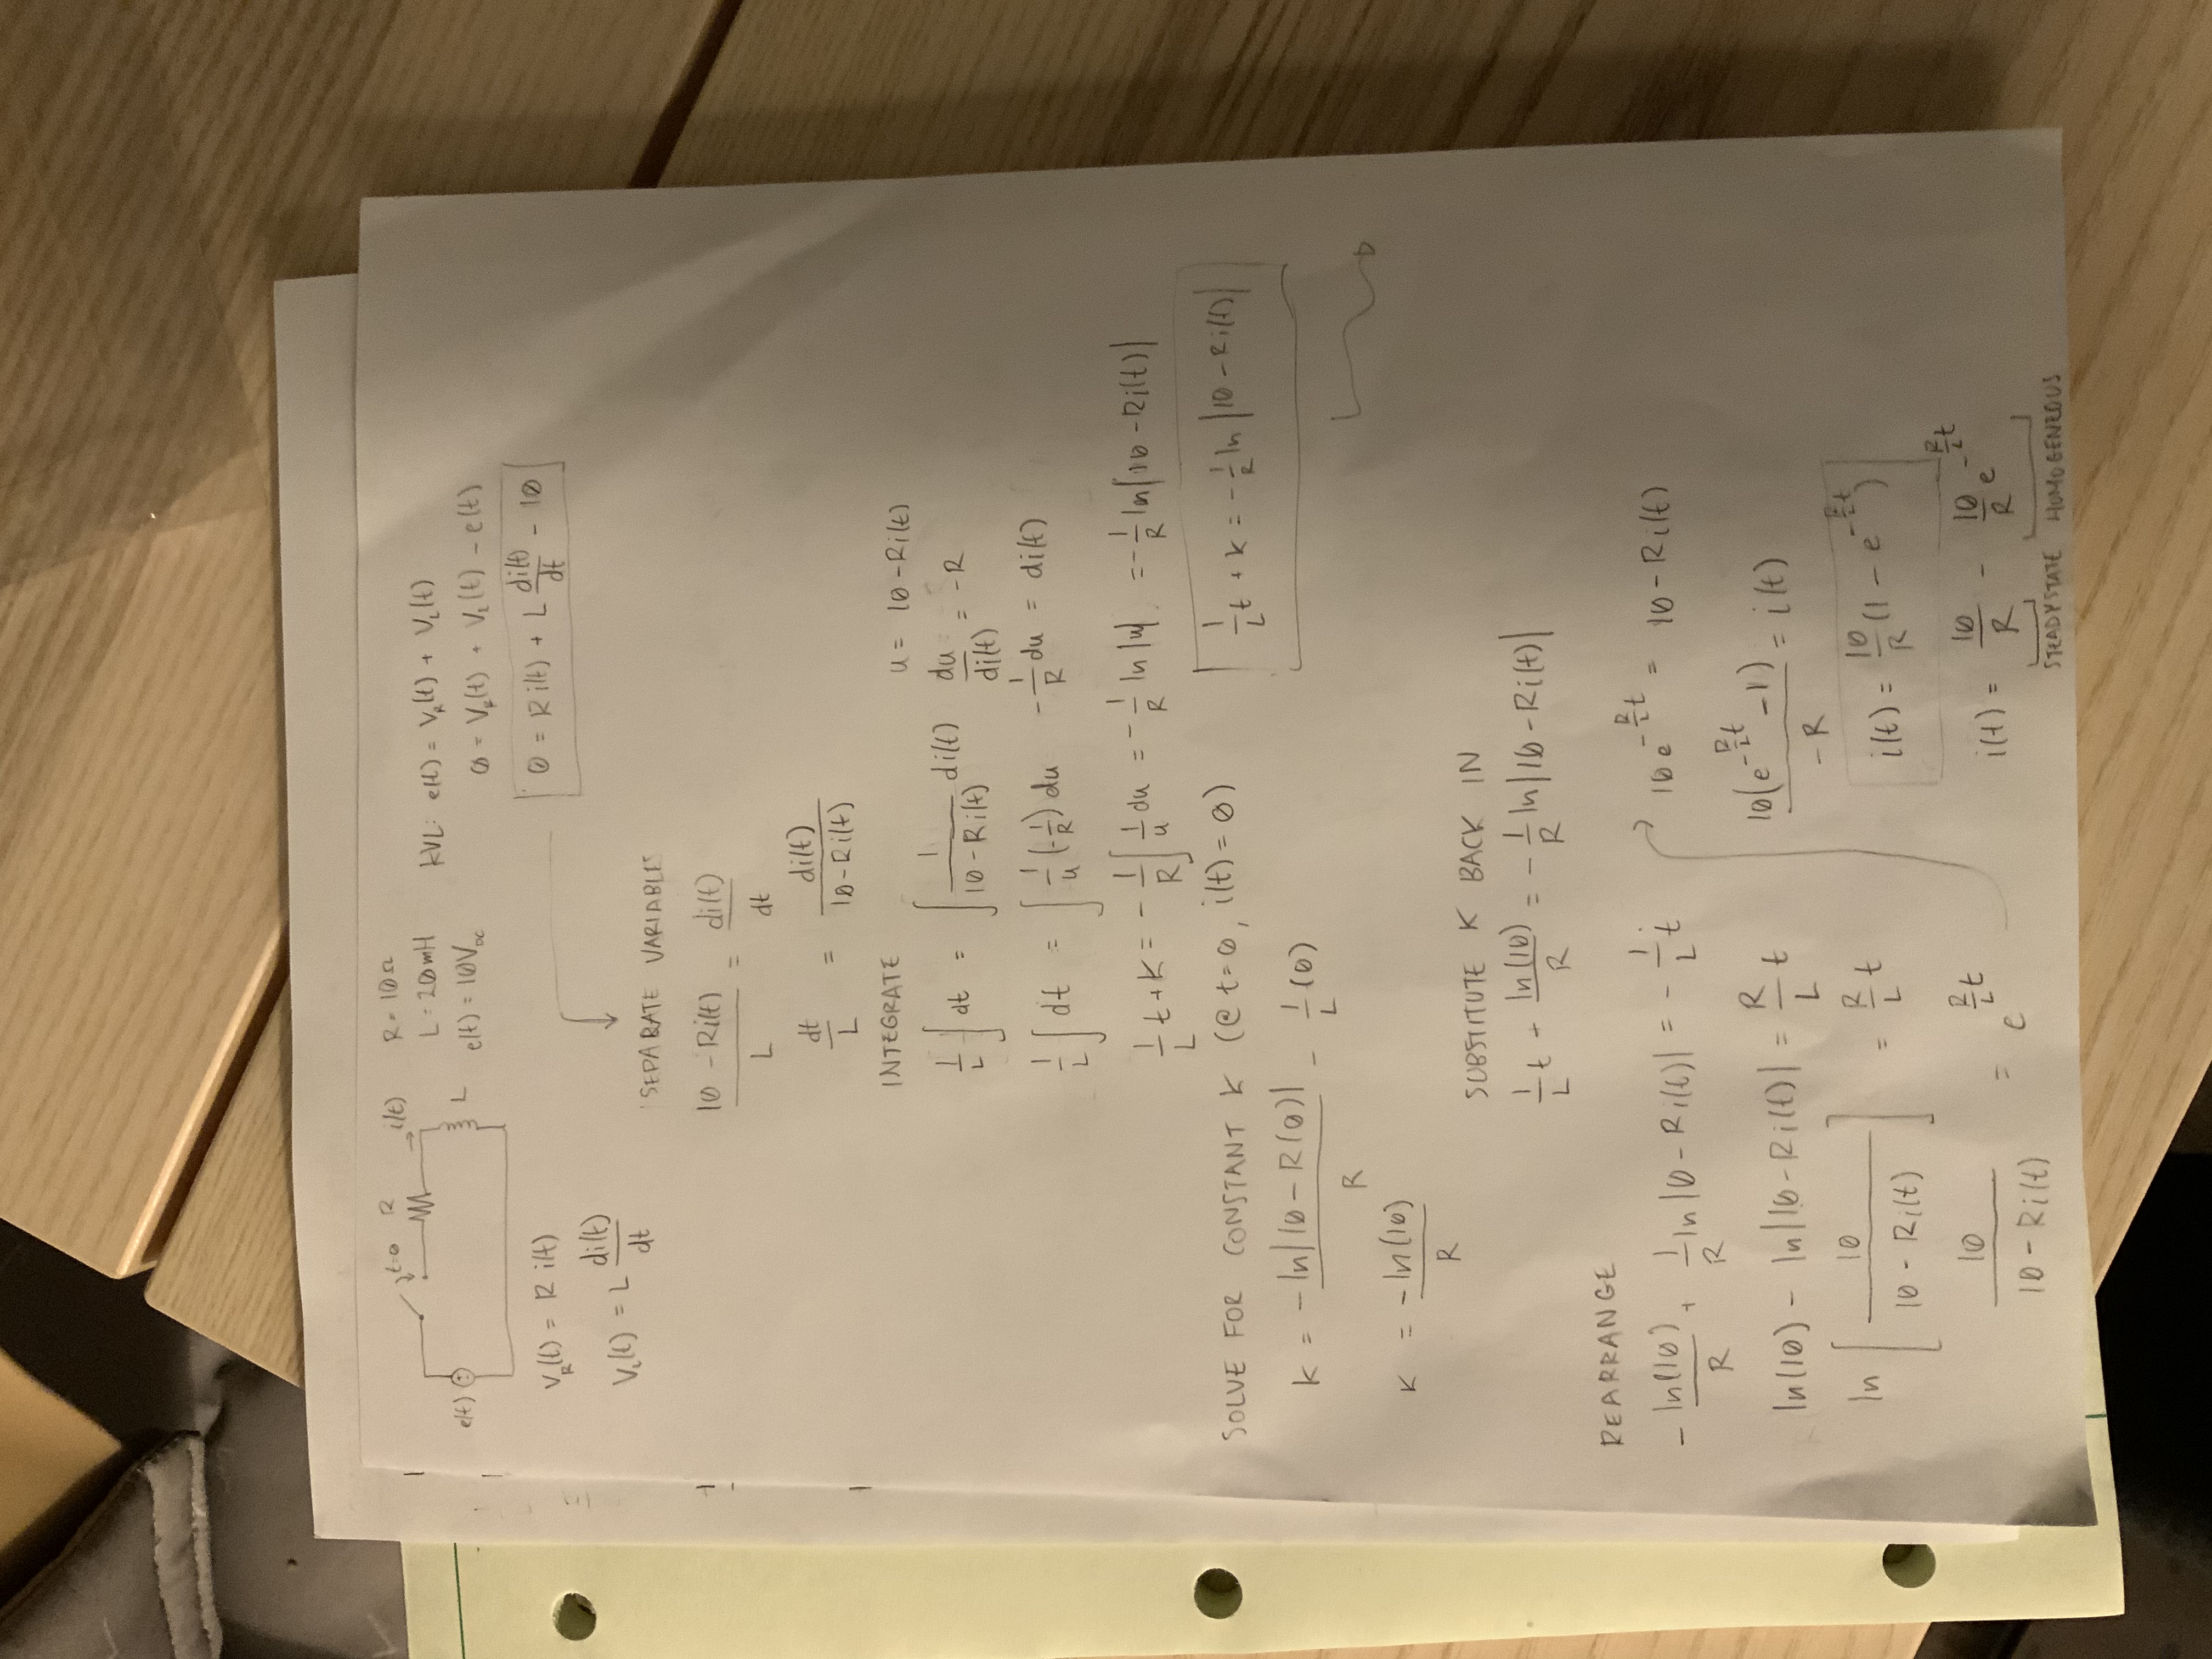 e(t) t=0 R i(t) L
R = 10Ω
L = 20mH
e(t) = 10V_DC
V_R(t) = R i(t)
V_L(t) = L di(t)/dt
KVL: e(t) = V_R(t) + V_L(t)
0 = V_R(t) + V_L(t) - e(t)
0 = Ri(t) + L di(t)/dt - 10
SEPARATE VARIABLES
(10 - Ri(t))/L = di(t)/dt
dt/L = di(t)/(10 - Ri(t))
INTEGRATE
1/L ∫ dt = ∫ 1/(10 - Ri(t)) di(t)
u = 10 - Ri(t)
du/di(t) = -R
1/L ∫ dt = ∫ 1/u (-1/R) du
-1/R du = di(t)
1/L t + K = -1/R ∫ 1/u du = -1/R ln|u| = -1/R ln|10 - Ri(t)|
1/L t + K = -1/R ln|10 - Ri(t)|
SOLVE FOR CONSTANT K (@ t=0, i(t) = 0)
K = -ln|10 - R(0)|/R - 1/L (0)
K = -ln(10)/R
SUBSTITUTE K BACK IN
1/L t - ln(10)/R = -1/R ln|10 - Ri(t)|
REARRANGE
-ln(10)/R + 1/R ln|10 - Ri(t)| = -1/L t
ln(10) - ln|10 - Ri(t)| = R/L t
ln[10/(10 - Ri(t))] = R/L t
10/(10 - Ri(t)) = e^(R/L t)
10e^(-R/L t) = 10 - Ri(t)
10(e^(-R/L t) - 1)/-R = i(t)
i(t) = 10/R (1 - e^(-R/L t))
i(t) = 10/R - 10/R e^(-R/L t)
STEADY STATE HOMOGENEOUS